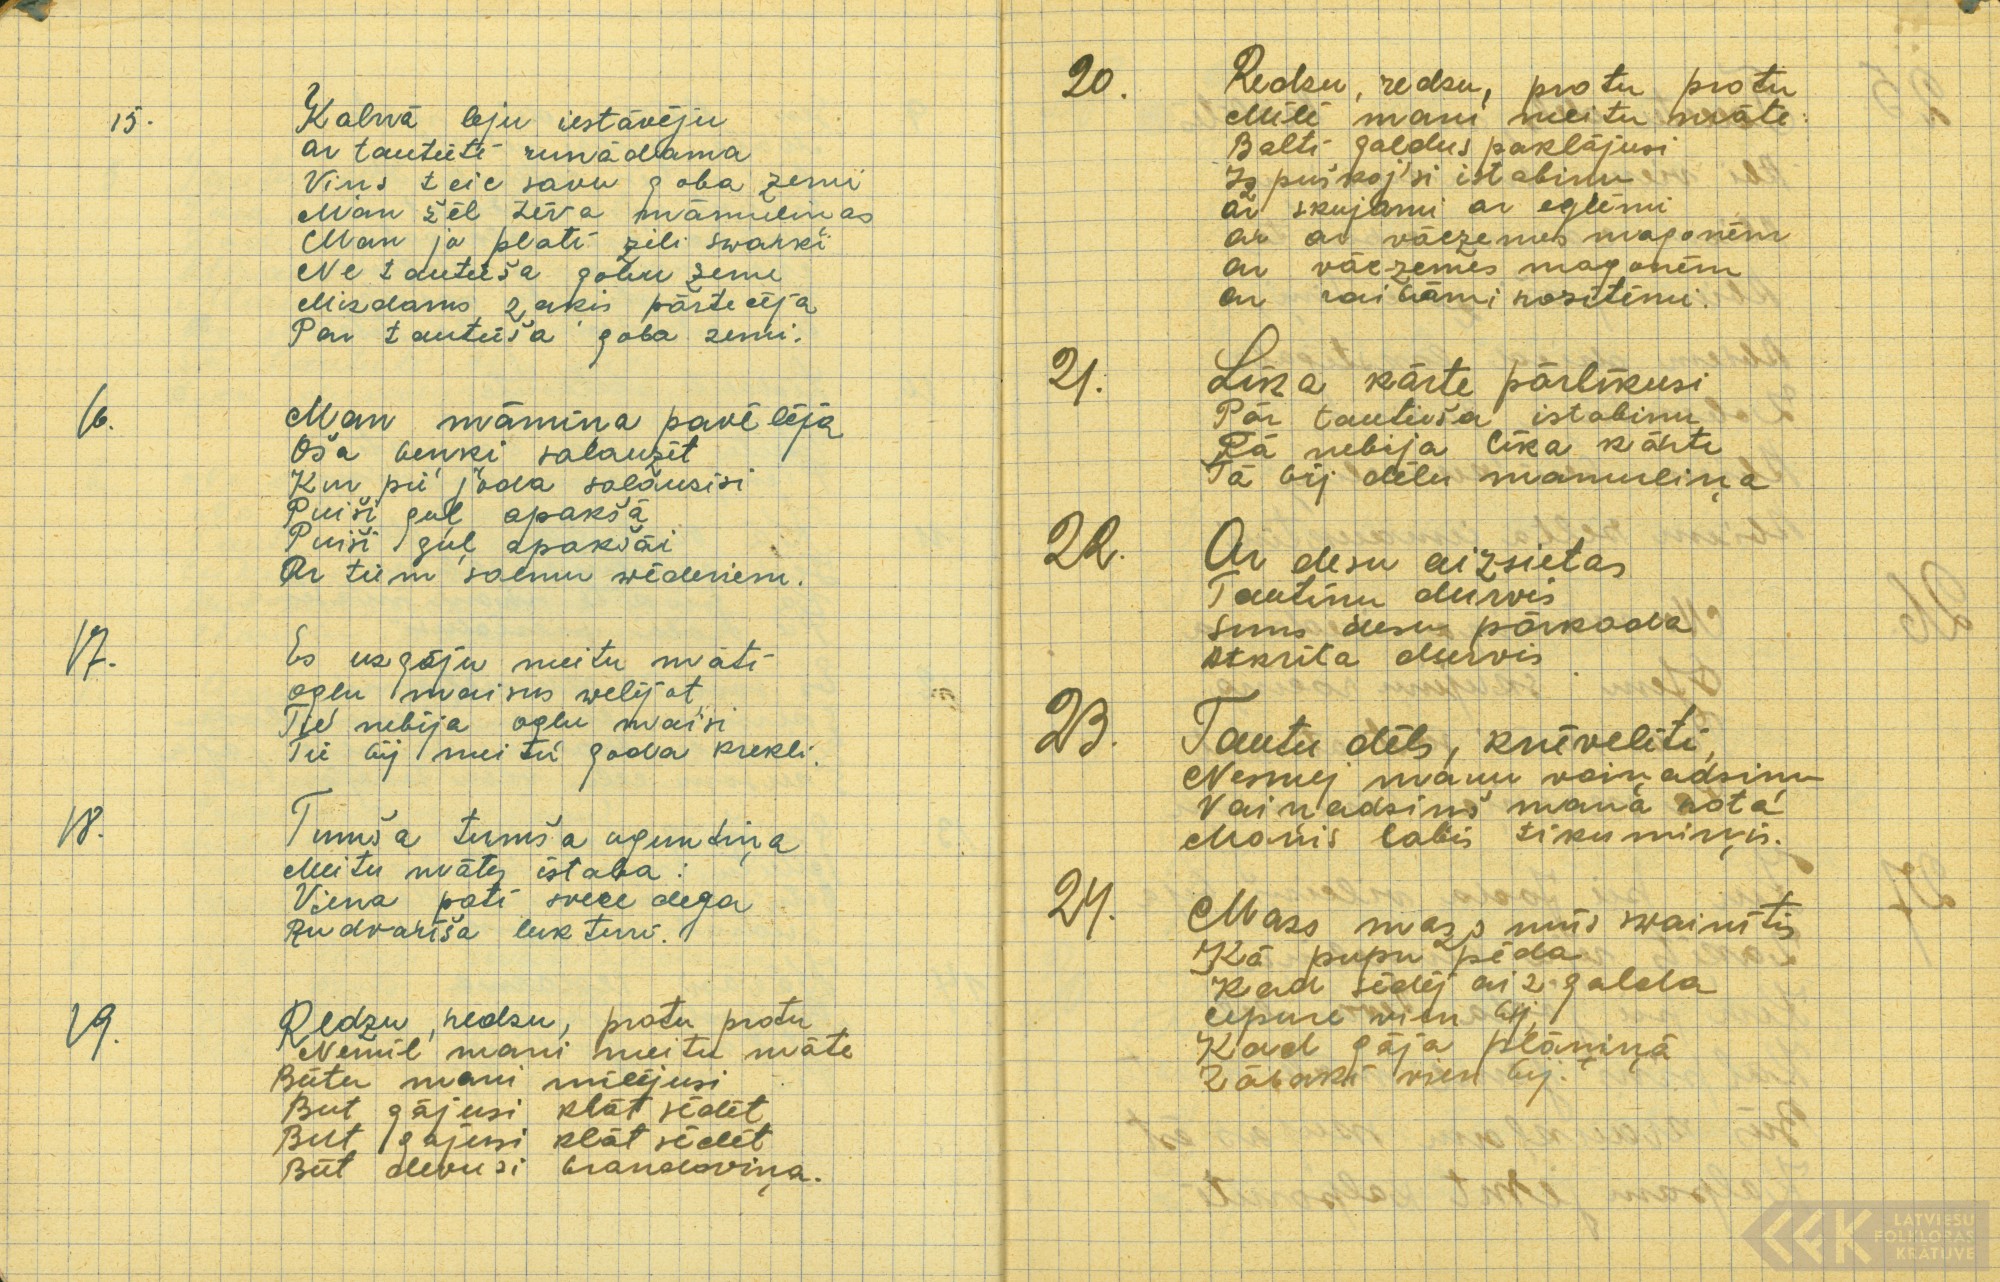 15.
Kalnā leju iestāvēju
ar tautieti runādama
Viņs teic savu goba zemi
Man žēl tēva māmuliņas
Man ja plati zili swarki
Ne tautieša gobu zeme
Mizdams zaķis pārtecēja
Par tautieša goba zemi.
16.
Man māmiņa pavēlēja
Oša benķi salauzīt
Kur pie joda salauzisi
Puiši guļ apakšā
Puiši guļ apakšāi
Ar tiem salmu wēderiem.
17.
Es uzgāju meitu māti
oglu maisus welējot
Tie nebija oglu maisi
Tie bij meitu goda krekli.
18.
Tumša tumša uguntiņa
Meitu mātes istaba:
Viena pati svece dega
Rudvariša lukturi.
19.
Redzu, redzu, protu protu
Nemīl mani meitu māte
Būtu mani mīlējusi
But gājusi klāt sēdēt
But gājusi klāt sēdēt
Būt devusi brandoviņa.
20.
Redzu, redzu, protu protu
Mīlē mani meitu māte:
Balti galdus paklājusi
Izpuškoj'si istabiņu
ar skujami ar eglēmi
ar ar vāczemes magonēm
ar vāczemes magonēm
ar raibāmi rozītēmi.
21.
Līka kārte pārlīkusi
Pār tautieša istabiņu
Tā nebija līka kārte
Tā bij dēlu mamuliņa
22.
Ar desu aizsietas
Tautiņu durvis
suns desu pārkoda
Atkrita durvis
23.
Tautu dēls, knēvelīti,
Nesmej manu vaiņadziņu
Vaiņadziņš manā rotā
Manis labis tikumiņis.
24.
Mazs mazs mūs swainītis
Kā pupu pēda
Kad sēdēj aiz galda
cepure vien bij
Kad gāja plāniņā
Zābaki vien bij.
LATVIEŠU
FOLKLORAS
KRĀTUVE